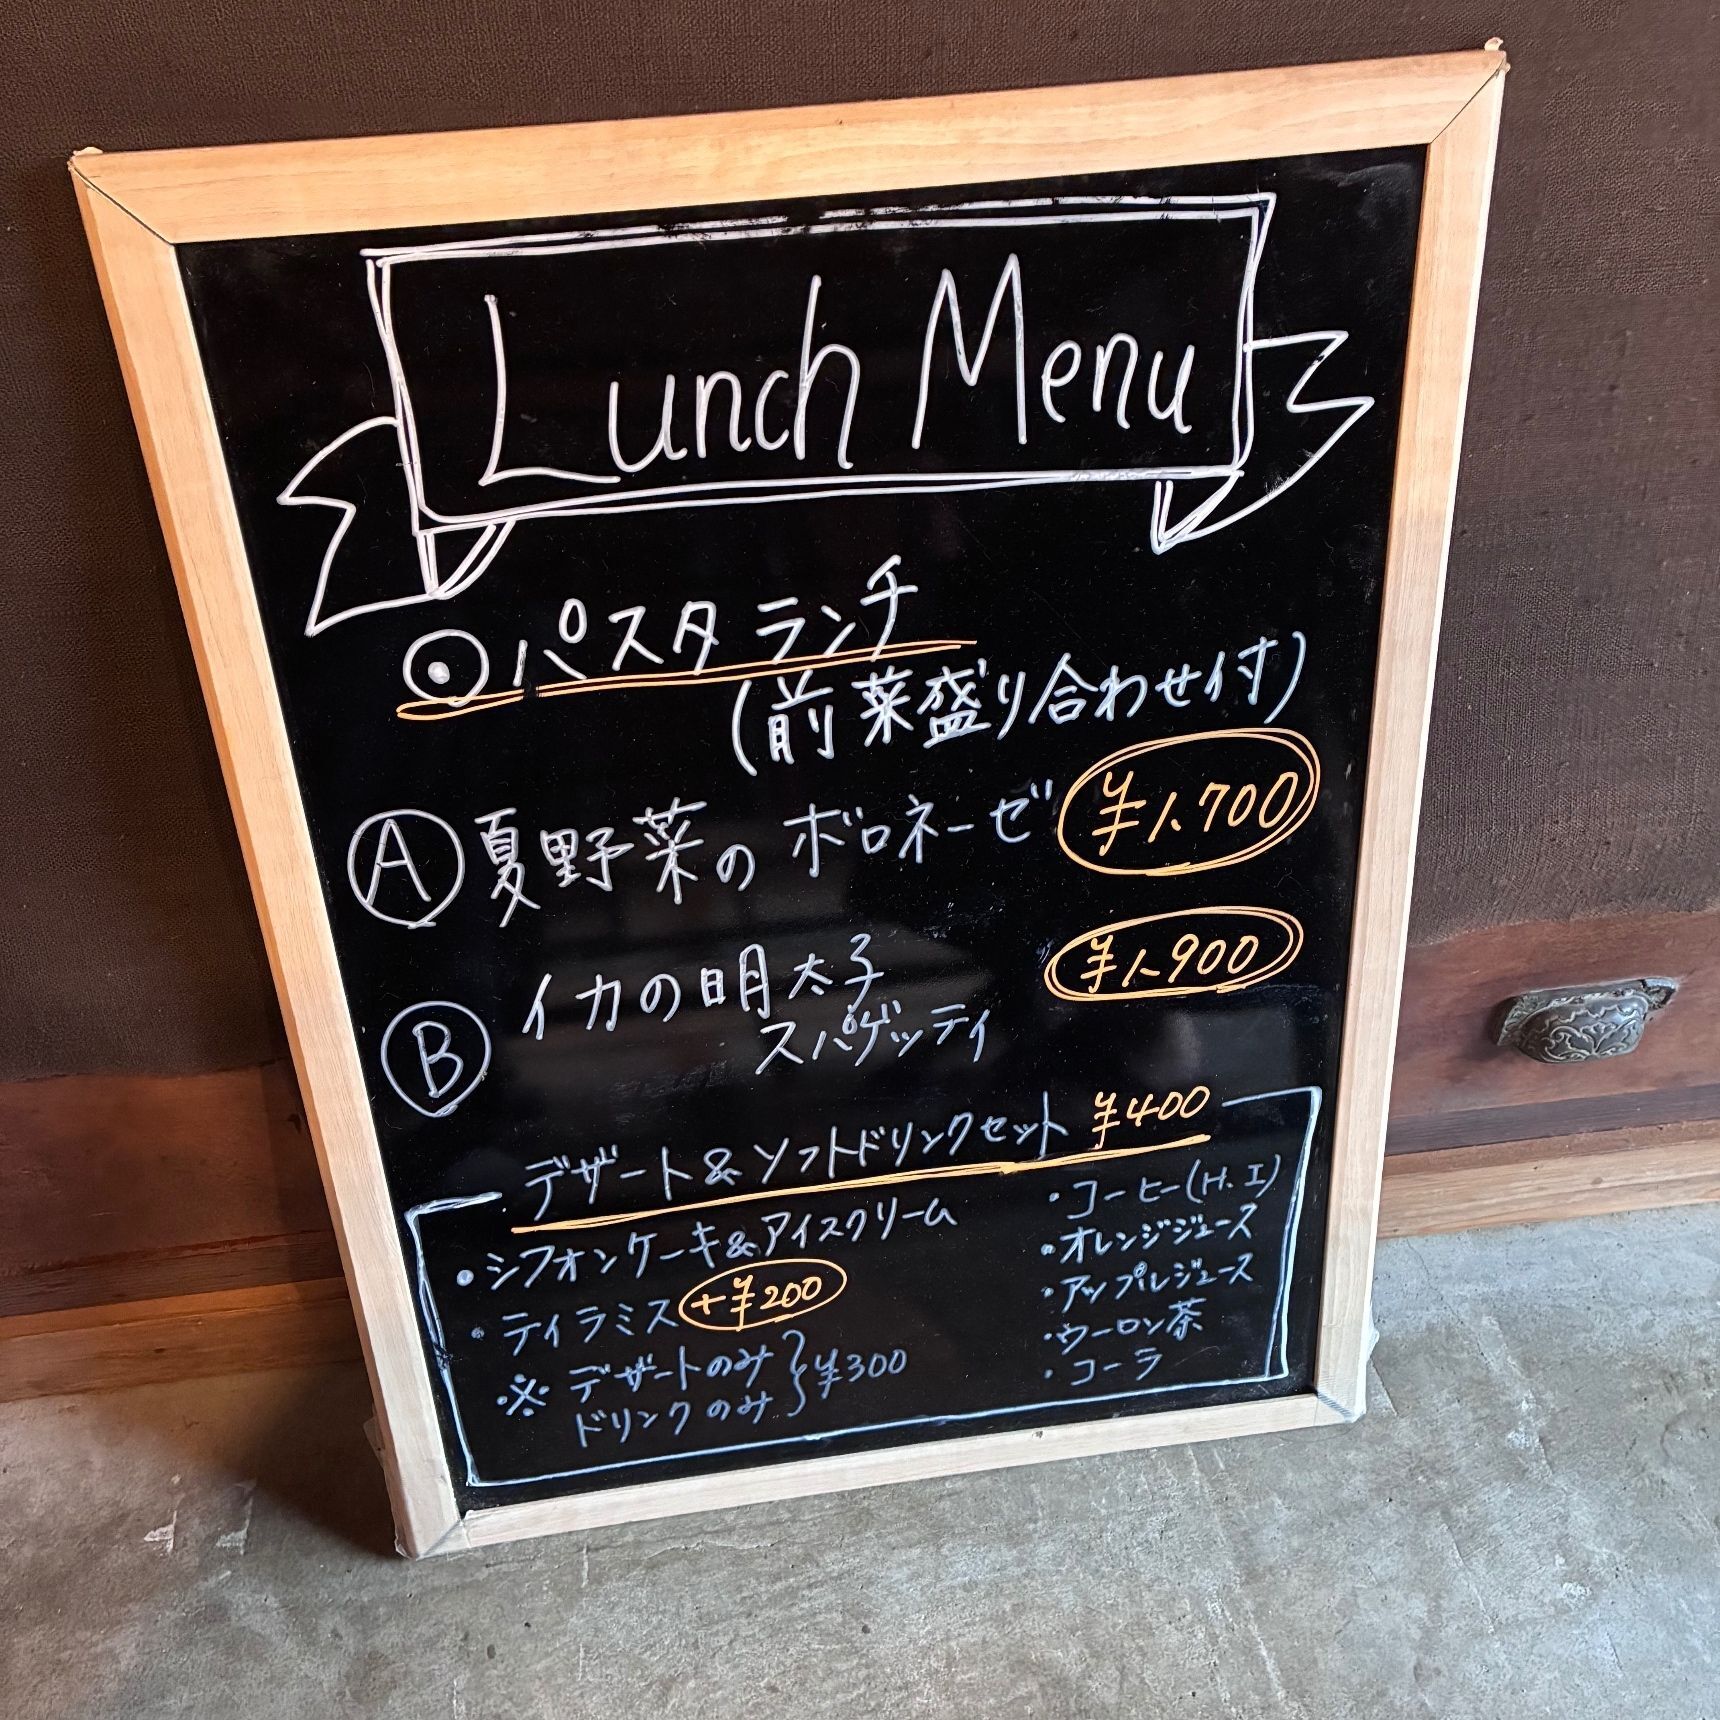 Lunch Menu
⦿パスタランチ
(前菜盛り合わせ付)
Ⓐ 夏野菜のボロネーゼ ¥1,700
Ⓑ イカの明太子 ¥1,900
スパゲッティ
デザート&ソフトドリンクセット ¥400
・シフォンケーキ&アイスクリーム
・ティラミス +¥200
※デザートのみ
ドリンクのみ } ¥300
・コーヒー(H.I)
・オレンジジュース
・アップルジュース
・ウーロン茶
・コーラ